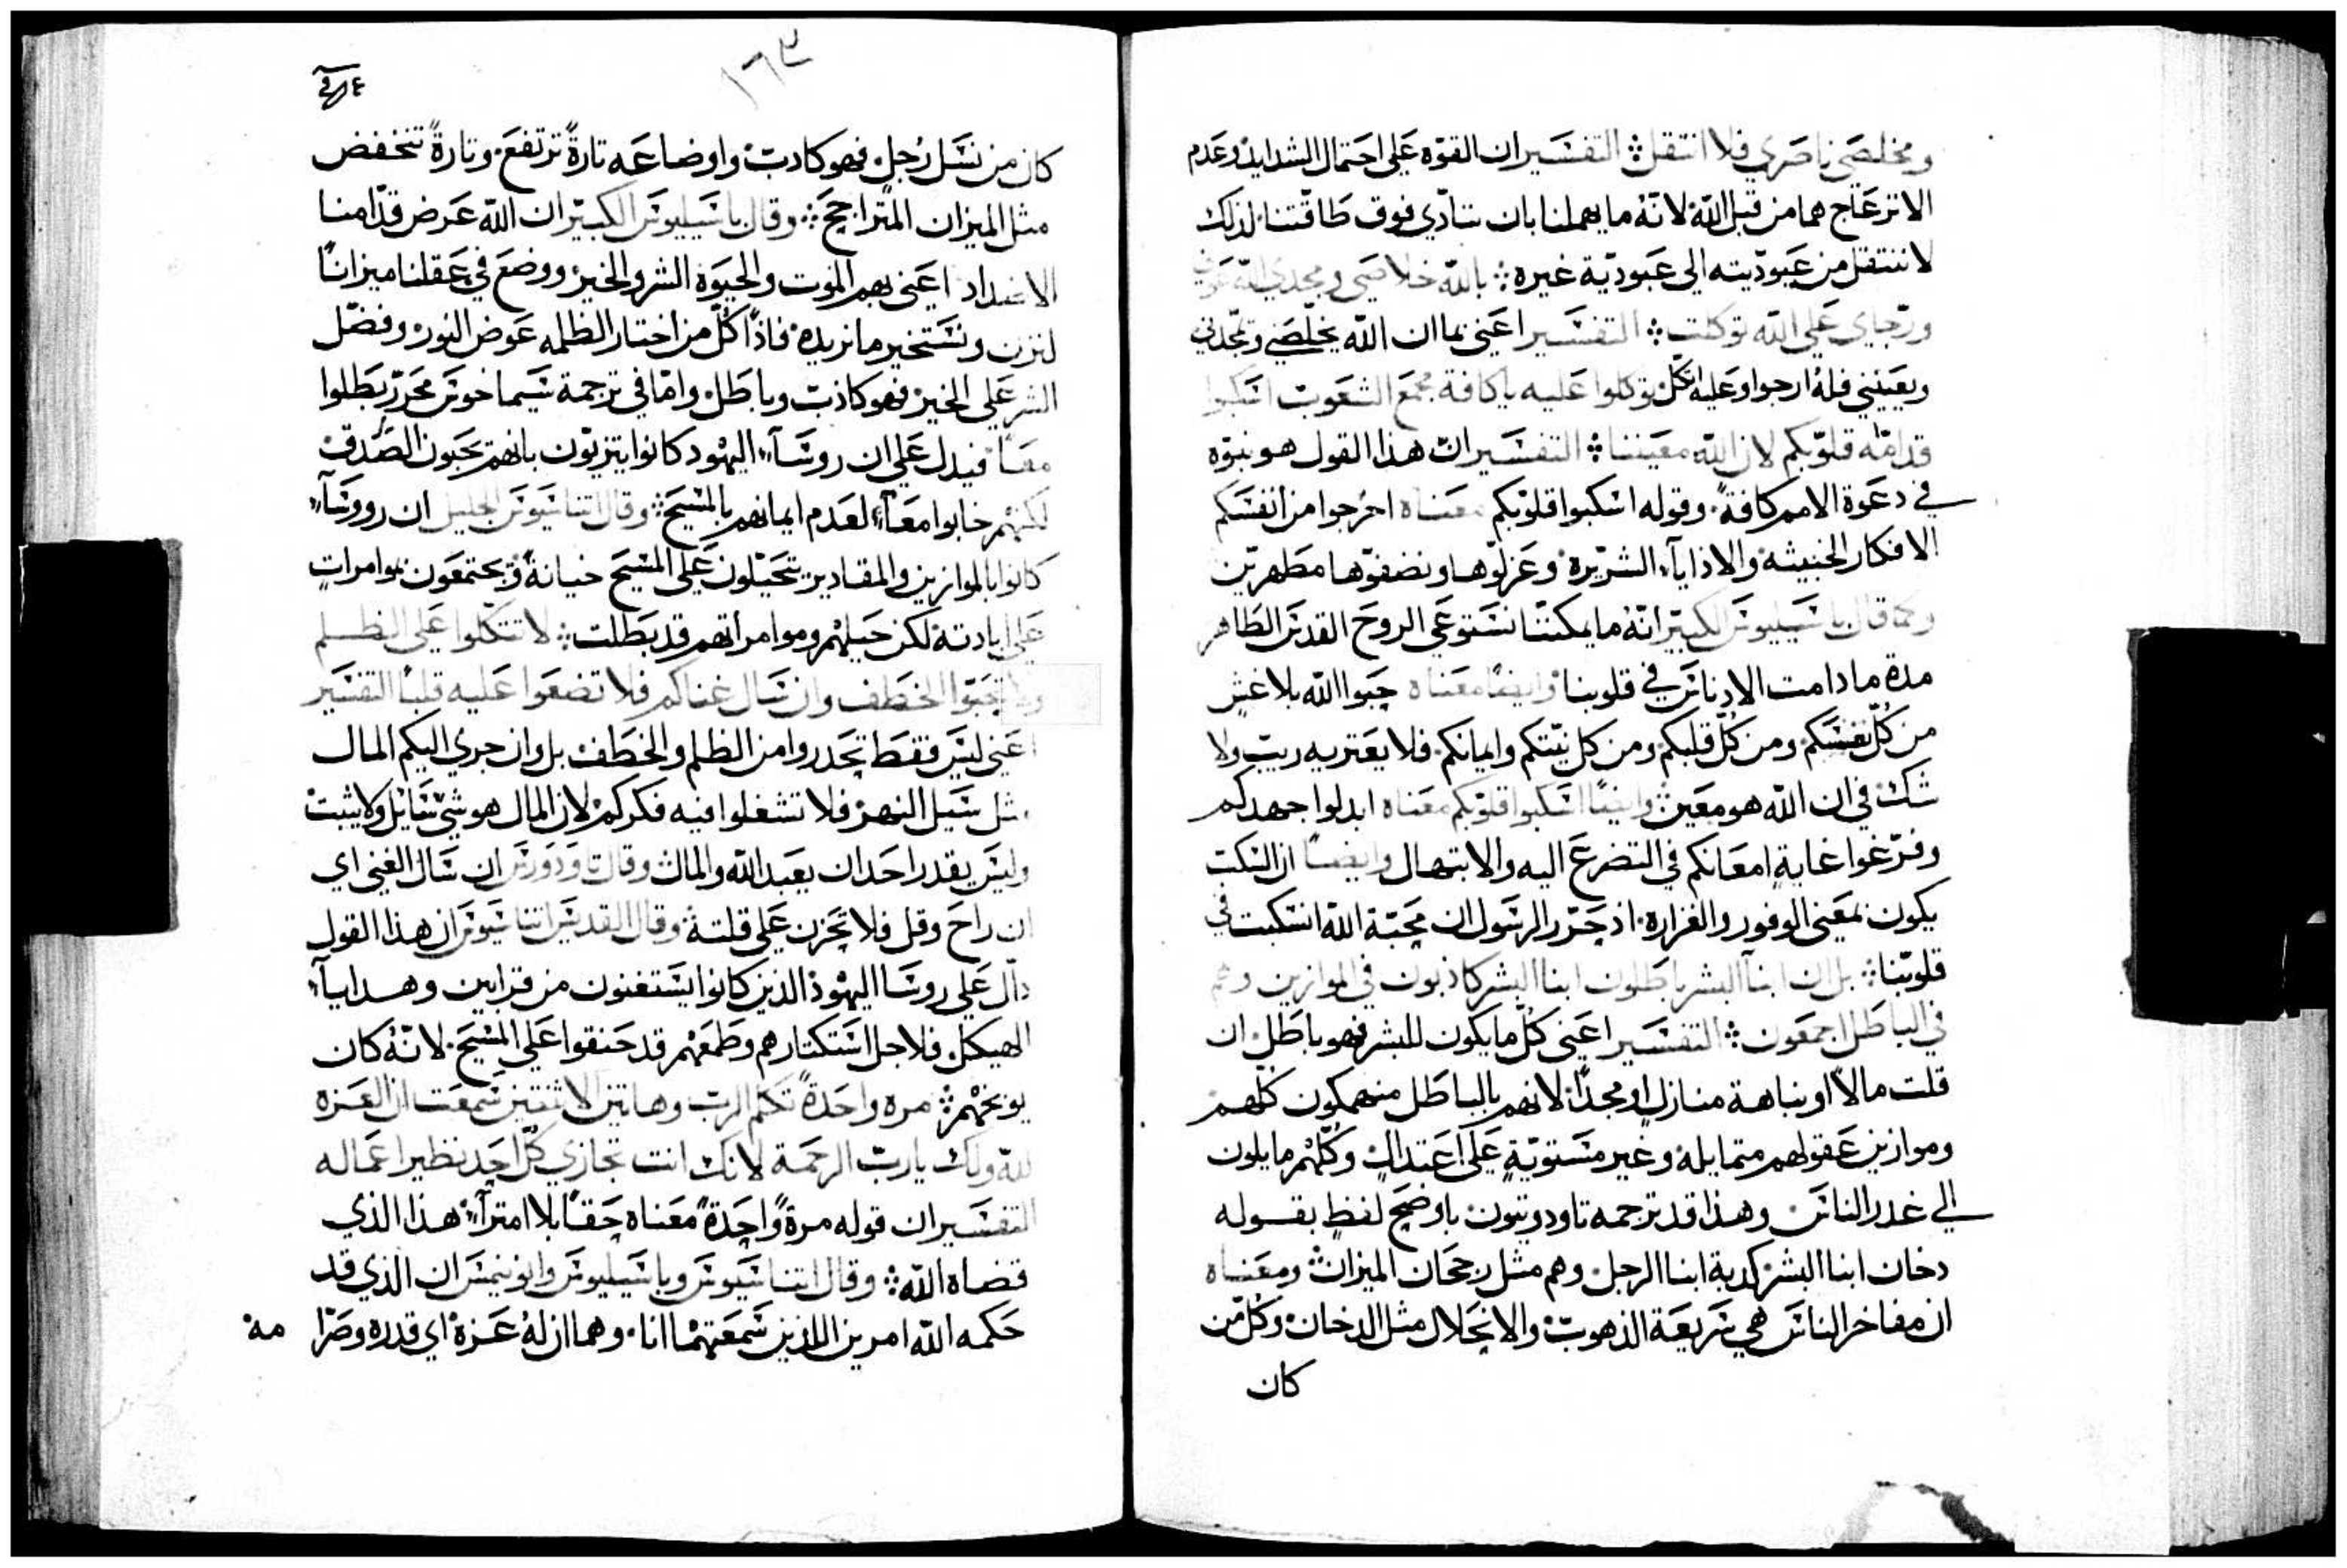 ومخلصي ناصري فلا انتقل ۞ التفسير ان القوه على احتمال الشدايد وعدم
الانزعاج هما من قبل الله لانه ما يهملنا بان نتادي فوق طاقتنا لذلك
لا ننتقل من عبوديته الى عبودية غيره ۞ بالله خلاصي ومجدي الله عوني
ورجاي على الله توكلت ۞ التفسير اعني بما ان الله يخلصني ويمجدني
ويعينني فله ارجوا وعليه اتكل توكلوا عليه يا كافة مجمع الشعوب اسكبوا
قدامه قلوبكم لان الله معيننا ۞ التفسير ان هذا القول هو نبوه
في دعوة الامم كافة وقوله اسكبوا قلوبكم معناه اخرجوا من انفسكم
الافكار الخبيثه والاذايآء الشريره وعزلوها ونضفوها مطهرين
وكما قال باسيليوس الكبير انه ما يمكننا نستوعي الروح القدس الطاهر
مدة ما دامت الادناس في قلوبنا وايضا معناه حبوا الله بلا غش
من كل نفسكم ومن كل قلبكم ومن كل نيتكم وايمانكم فلا يعتريه ريب ولا
شك في ان الله هو معين وايضا اسكبوا قلوبكم معناه ابدلوا جهدكم
وفرغوا غاية امعانكم في التضرع اليه والابتهال وايضا ان السكب
يكون بمعنى الوفور والغزاره اذ حرر الرسول ان محبة الله انسكبت في
قلوبنا ۞ بل ان ابنآ البشر باطلون ابنا البشر كاذبون في الموازين وهم
في الباطل اجمعون ۞ التفسير اعني كل ما يكون للبشر فهو باطل ان
قلت مالا او نباهة منازل او مجدا لانهم بالباطل منهمكون كلهم
وموازين عقولهم متمايله وغير مستوية على اعتدال وكلهم مايلون
الى غدر الناس وهذا قد ترجمه تاودوتيون باوضح لفظ بقوله
دخان ابنا البشر كدبة ابنا الرجل وهم مثل رجحان الميزان ومعناه
ان مفاخر الناس هي سريعة الذهوب والانحلال مثل الدخان وكل من
كان
١٦٣
كان من نسل رجل فهو كادب واوضاعه تارة ترتفع وتارة تنخفض
مثل الميزان المتراجح ۞ وقال باسيليوس الكبير ان الله عرض قدامنا
الاضداد اعني بهم الموت والحيوة الشر والخير ووضع في عقلنا ميزانا
لنزن ونستخير ما نريده فاذا كل من اختار الظلمه عوض النور وفضل
الشر على الخير فهو كاذب وباطل واما في ترجمة سيماخوس محرر بطلوا
معا فيدل على ان روسآء اليهود كانوا يتزيون بانهم يحبون الصدق
لكنهم خابوا معآ لعدم ايمانهم بالمسيح ۞ وقال اتناسيوس الجليل ان رووسآء
كانوا بالموازين والمقادير يتحيلون على المسيح خيانة ويجتمعون بوامرات
على ابادته لكن حيلهم وموامراتهم قد بطلت ۞ لا تتكلوا على الظلم
ولا تحبوا الخطف وان سال غناكم فلا تضعوا عليه قلبا التفسير
اعني ليس فقط تحدروا من الظلم والخطف بل وان جرى اليكم المال
مثل سيل النهر فلا تشغلوا فيه فكركم لان المال هو شي سايل ولا يثبت
وليس يقدر احد ان يعبد الله والمال وقال تاودورس ان سال الغنى اي
ان راح وقل فلا تحزن على قلته وقال القديس اتناسيوس ان هذا القول
دال على روسا اليهود الذين كانوا يستغنون من قرابين وهدايآء
الهيكل فلاجل استكتارهم وطمعهم قد حنقوا على المسيح لانه كان
يوبخهم ۞ مره واحدة تكلم الرب وهاتين الاثنتين سمعت ان العزه
لله ولك يارب الرحمة لانك انت تجازي كل احد نظير اعماله
التفسير ان قوله مرة واحدة معناه حقا بلا امترآء هذا الذي
قضاه الله ۞ وقال اتناسيوس وباسيليوس وايونيمس ان الذي قد
حكمه الله امرين اللذين سمعتهما انا وهما ان له عزة اي قدره وصرا مة